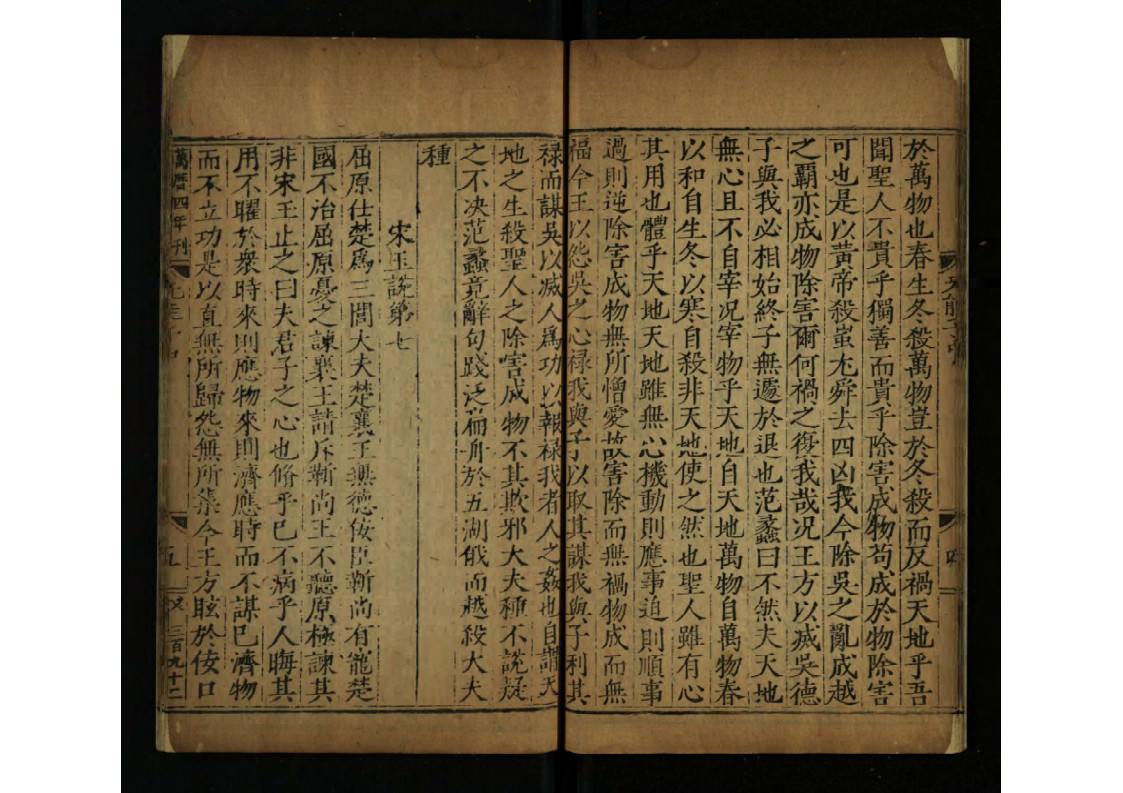 於萬物也春生冬殺萬物豈於冬殺而反禍天地乎吾
聞聖人不貴乎獨善而貴乎除害成物苟成於物除害
可也是以黃帝殺蚩尤舜去四凶我今除吳之亂成越
之霸亦成物除害爾何禍之復我哉况王方以烕吳德
子與我必相始終子無遽於退也范蠡曰不然夫天地
無心且不自宰况宰物乎天地自天地萬物自萬物春
以和自生冬以寒自殺非天地使之然也聖人雖有心
其用也體乎天地天地雖無心機動則應事迫則順事
過則逆除害成物無所憎愛故害除而無禍物成而無
福今王以怨吳之心祿我與子以取其謀我與子利其
祿而謀吳以滅人爲功以報祿我者人之姦也自謂天
地之生殺聖人之除害成物不其欺邪大夫種不說疑
之不决范蠡竟辭句踐泛萹舟於五湖俄而越殺大夫
種
宋玉說第七
屈原仕楚爲三閭大夫楚襄王無德佞臣靳尚有寵楚
國不治屈原憂之諫襄王請斥靳尚王不聽原極諫其
非宋玉止之曰夫君子之心也脩乎已不病乎人晦其
用不曜於衆時來則應物來則濟應時而不謀已濟物
而不立功是以直無所歸怨無所集今王方眩於佞口
萬曆四年刊
五
三百九十二